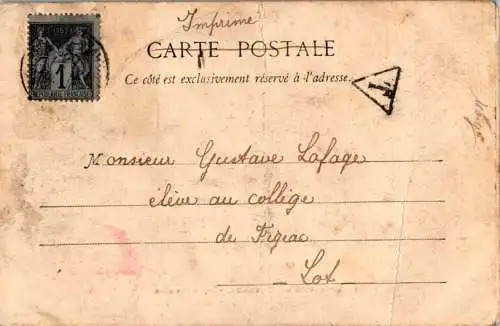 Imprime
CARTE POSTALE
Ce côté est exclusivement réservé à l'adresse.
1
T
Monsieur Gustave Lafage
élève au collège
de Figeac
Lot